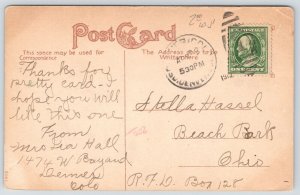 Post Card
This space may be used for
Correspondence
The address only to be
Written here.
ONE CENT
530PM
Thanks for
pretty card. I
hope you will
like this one
From
Mrs Ira Hall
1474 W Bayard
Denver
Colo
Stella Hassel
Beach Park
Ohio
R.F.D. Box 128